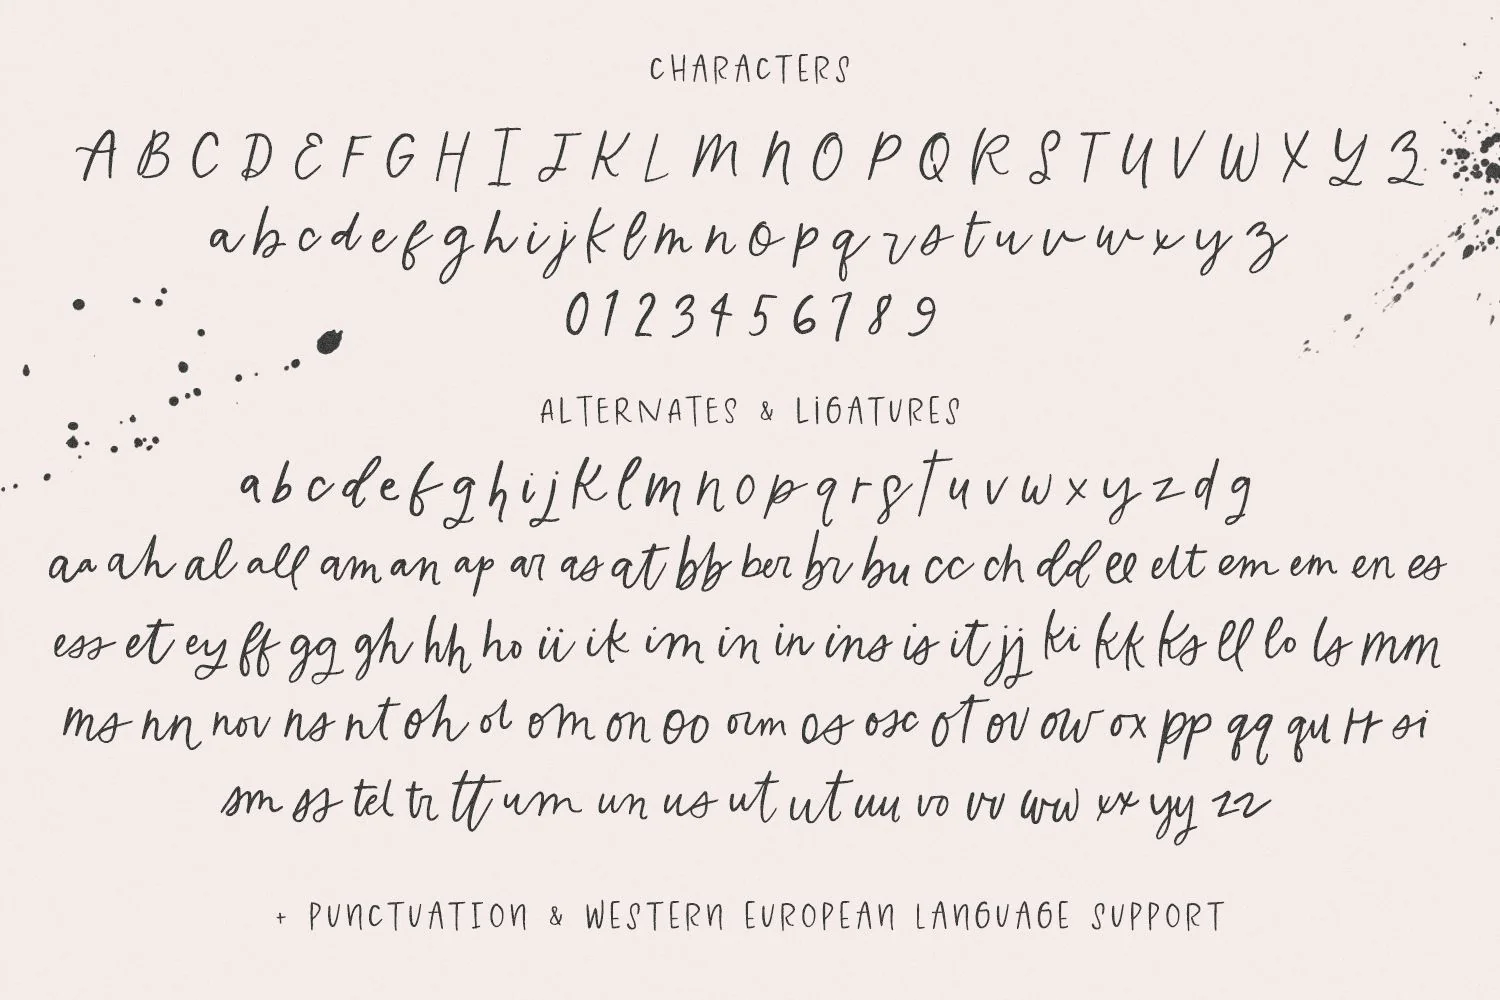 CHARACTERS
A B C D E F G H I J K L M N O P Q R S T U V W X Y Z
a b c d e f g h i j k l m n o p q r s t u v w x y z
0 1 2 3 4 5 6 7 8 9
ALTERNATES & LIGATURES
a b c d e f g h i j k l m n o p q r s t u v w x y z d g
aa ah al all am an ap ar as at bb ber br bu cc ch dd ee elt em em en es
ess et ey ff gg gh hh ho ii ik im in in ins is it jj ki kk ks ll lo ls mm
ms nn nov ns nt oh ol om on oo orm os osc ot ov ow ox pp qq qu rr si
sm ss tel tr tt um un us ut ut uu vo vv ww xx yy zz
+ PUNCTUATION & WESTERN EUROPEAN LANGUAGE SUPPORT